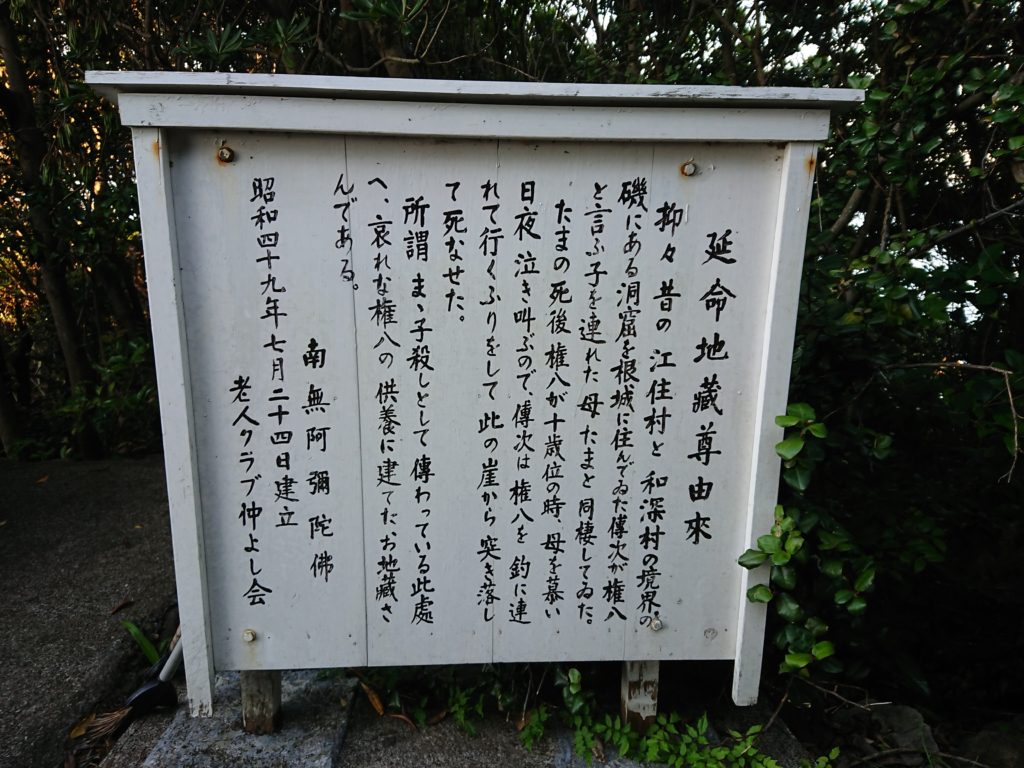 延命地藏尊由來
抑々昔の江住村と和深村の境界の
磯にある洞窟を根城に住んでゐた傳次が権八
と言ふ子を連れた母たまと同棲してゐた。
たまの死後権八が十歳位の時、母を慕い
日夜泣き叫ぶので、傳次は権八を釣に連
れて行くふりをして此の崖から突き落し
て死なせた。
所謂まゝ子殺しとして傳わっている此處
へ、哀れな権八の供養に建てたお地藏さ
んである。
南無阿彌陀佛
昭和四十九年七月二十四日建立
老人クラブ仲よし会